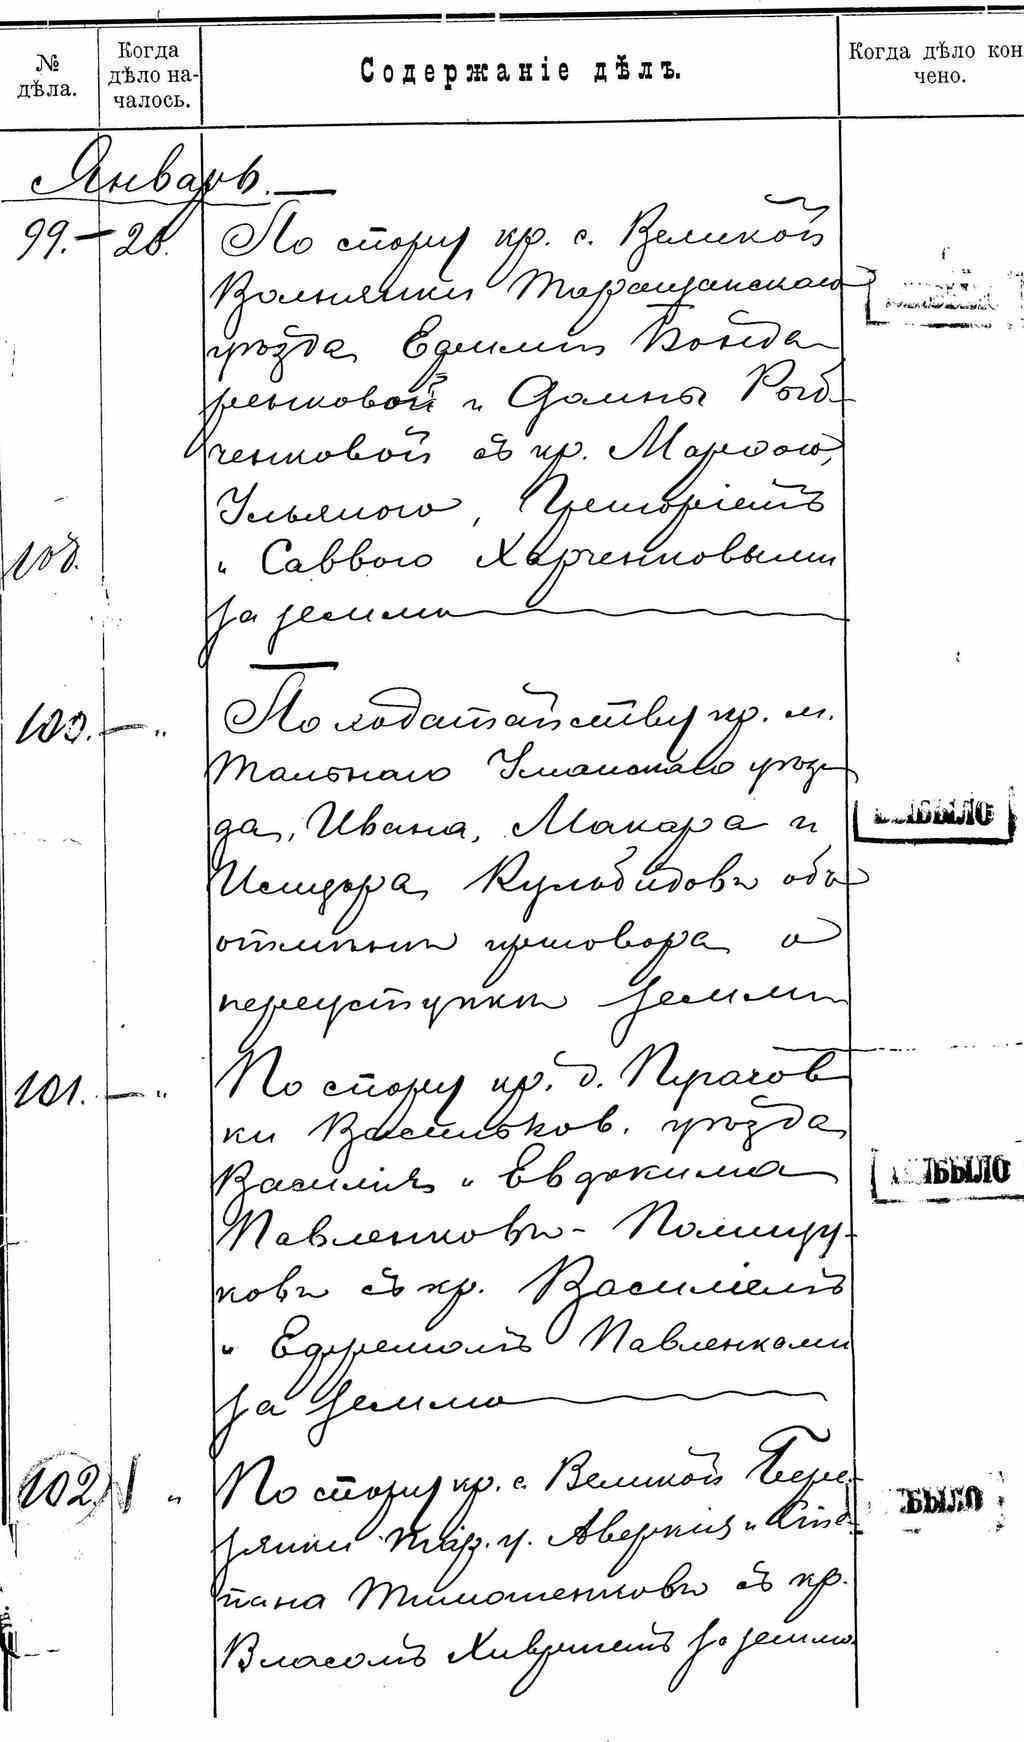 № дѣла.
Когда дѣло на-чалось.
Содержаніе дѣлъ.
Когда дѣло кон чено.
Январь.
99. — 20. По спору кр. с. Великой
Вольнянки Таращанскаго
уѣзда Евимии Бонда
ренковой и Домны Рыб-
ченковой съ кр. Марфою,
Ульяною, Григоріемъ
100.
и Саввою Харченковыми
за землю
100. — „ По ходатайству кр. м.
Тальнаго Уманскаго уѣз
да, Ивана, Макара и
Исидора Кульбидовъ объ
отмѣнѣ приговора о
переуступкѣ земли
ВЫБЫЛО
101. — „ По спору кр. д. Пугачов
ки Васильков. уѣзда
Василія и Евдокима
Павленковъ - Полищу-
ковъ съ кр. Василіемъ
и Ефремомъ Павленками
за землю
ВЫБЫЛО
102. „ По спору кр. с. Великой Бере-
зянки Тар. у. Аверкия и Сте-
пана Тимошенковъ съ кр.
Власомъ Хивричемъ за землю.
БЫЛО